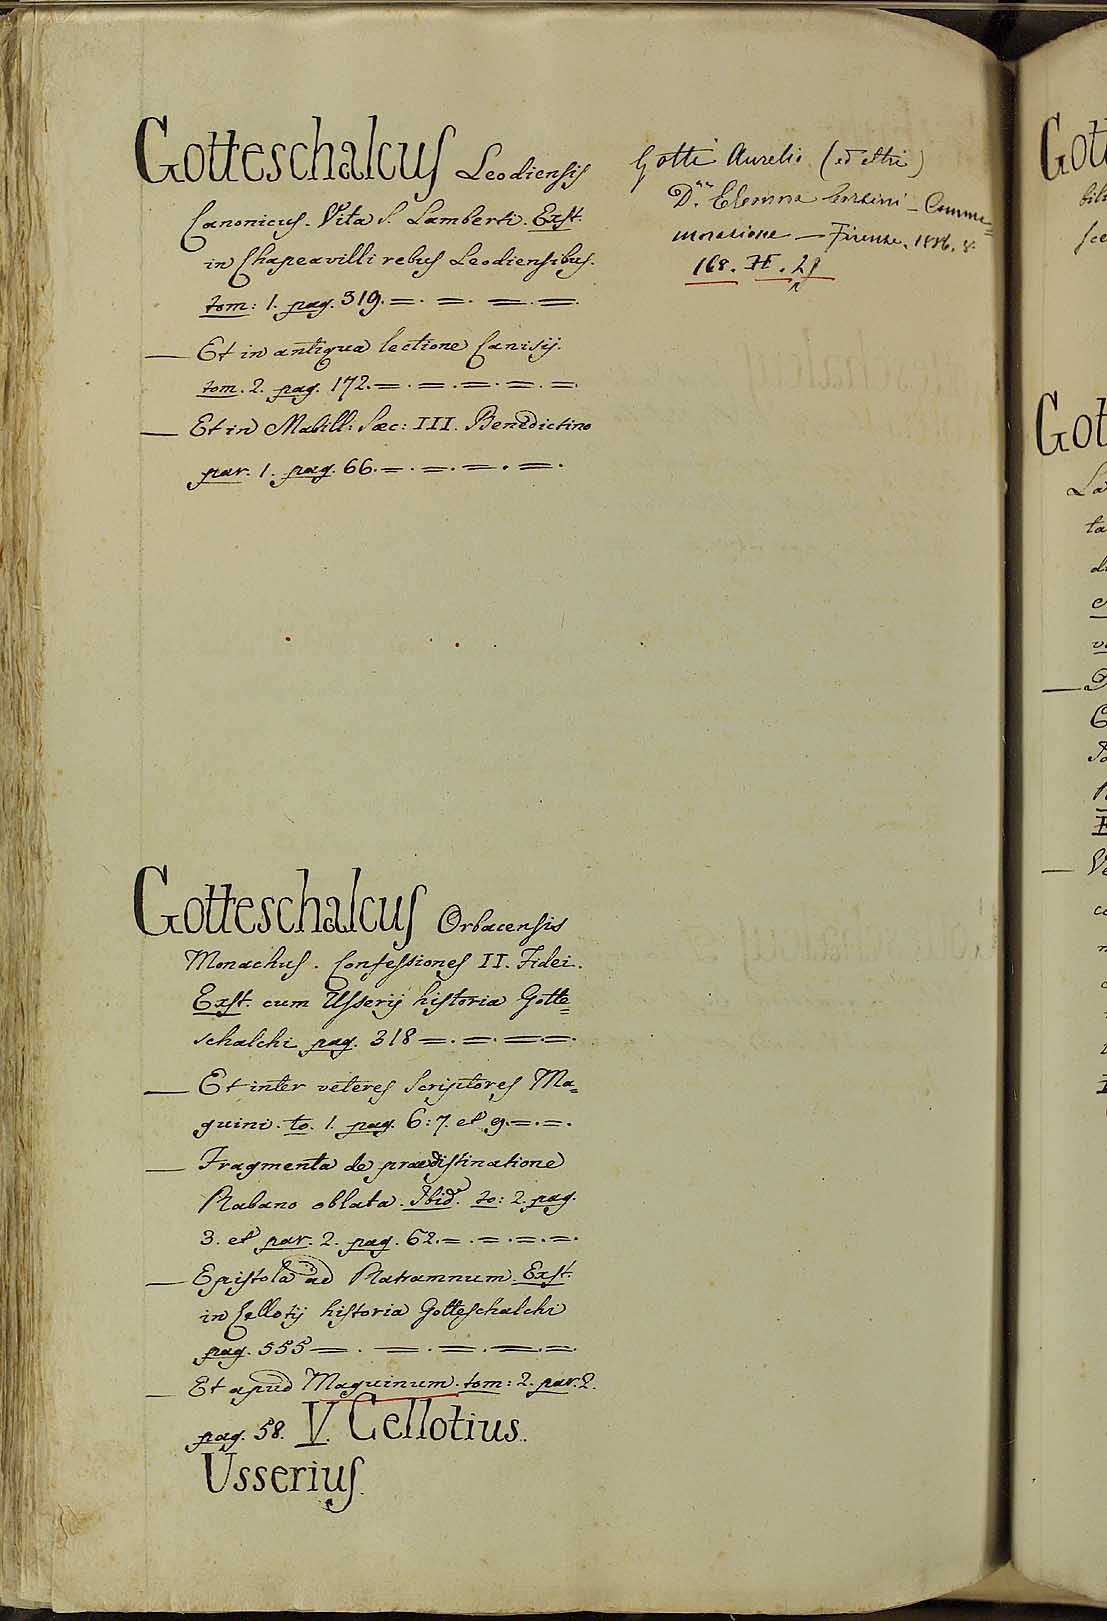 Gotteschalcus Leodiensis
Canonicus. Vita S. Lamberti. Exst.
in Chapeavilli rebus Leodiensibus.
tom: 1. pag. 319. =. =. =. =.
— Et in antiqua lectione Canisij.
tom. 2. pag. 172. =. =. =. =. =.
— Et in Mabill: Sæc: III. Benedictino
par. 1. pag. 66. =. =. =. =.
Gotti Aurelio (ed altri)
D.na Elemna Corsini - Comme=
morazione — Firenze, 1886. 8:
168. H. 21
Gotteschalcus Orbacensis
Monachus. Confessiones II. Fidei.
Exst. cum Usserij historia Gotte=
schalchi pag. 318 =. =. =. =.
— Et inter veteres Scriptores Ma=
guini. to. 1. pag. 6: 7. et 9. =. =.
— Fragmenta de prædistinatione
Rabano oblata. Ibid. to: 2. pag.
3. et par. 2. pag. 62. =. =. =. =.
— Epistola ad Ratramnum. Exst.
in Cellotij historia Gotteschalchi
pag. 555 =. =. =. =. =.
— Et apud Maguinum. tom: 2. par. 2.
pag. 58. V. Cellotius.
Usserius.